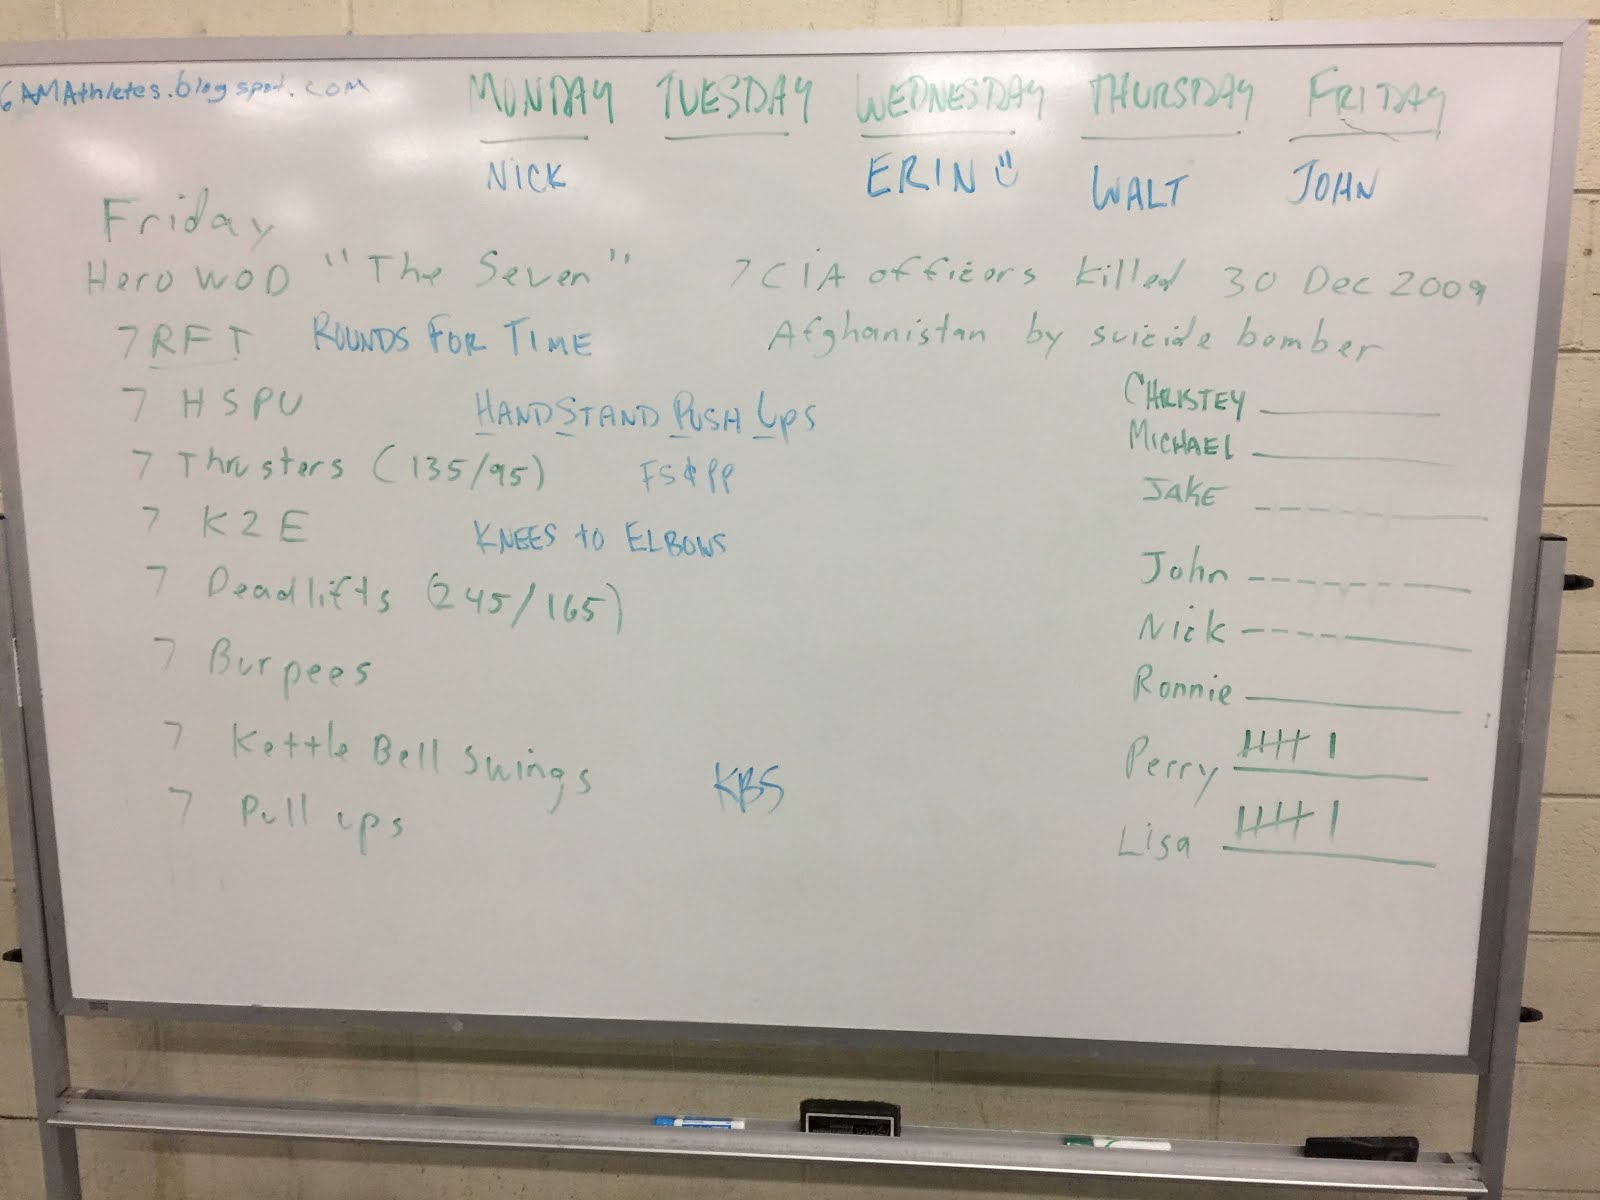 6AMAthletes.blogspot.com
MONDAY TUESDAY WEDNESDAY THURSDAY FRIDAY
NICK ERIN WALT JOHN
Friday
Hero WOD "The Seven" 7 CIA officors killed 30 Dec 2009
7 RFT ROUNDS FOR TIME Afghanistan by suicide bomber
7 HSPU HANDSTAND PUSH UPS CHRISTEY
MICHAEL
7 Thrusters (135/95) FS & PP JAKE
7 K2E KNEES to ELBOWS John
7 Deadlifts (245/165) Nick
7 Burpees Ronnie
7 Kettle Bell Swings KBS Perry
7 Pull ups Lisa